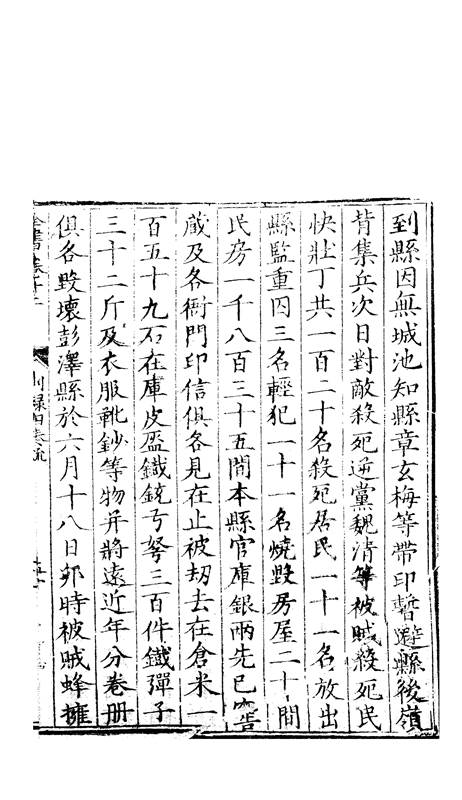 到縣因無城池知縣章玄梅等帶印暫避縣後嶺
背集兵次日對敵殺死逆黨魏清等被賊殺死民
快壯丁共一百二十名殺死居民一十一名放出
縣監重囚三名輕犯一十一名燒毀房屋二十間
民房一千八百三十五間本縣官庫銀兩先已窖
藏及各衙門印信俱各見在止被刼去在倉米一
百五十九石在庫皮盔鐵銃弓弩三百件鐵彈子
三十二斤及衣服靴鈔等物并將遠近年分卷冊
俱各毀壞彭澤縣於六月十八日卯時被賊蜂擁